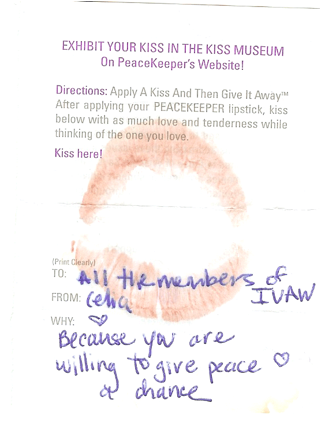 EXHIBIT YOUR KISS IN THE KISS MUSEUM
On PeaceKeeper's Website!
Directions: Apply A Kiss And Then Give It Away™
After applying your PEACEKEEPER lipstick, kiss
below with as much love and tenderness while
thinking of the one you love.
Kiss here!
(Print Clearly)
TO: All the members of
IVAW
FROM: Celia
WHY:
Because you are
willing to give peace
a chance